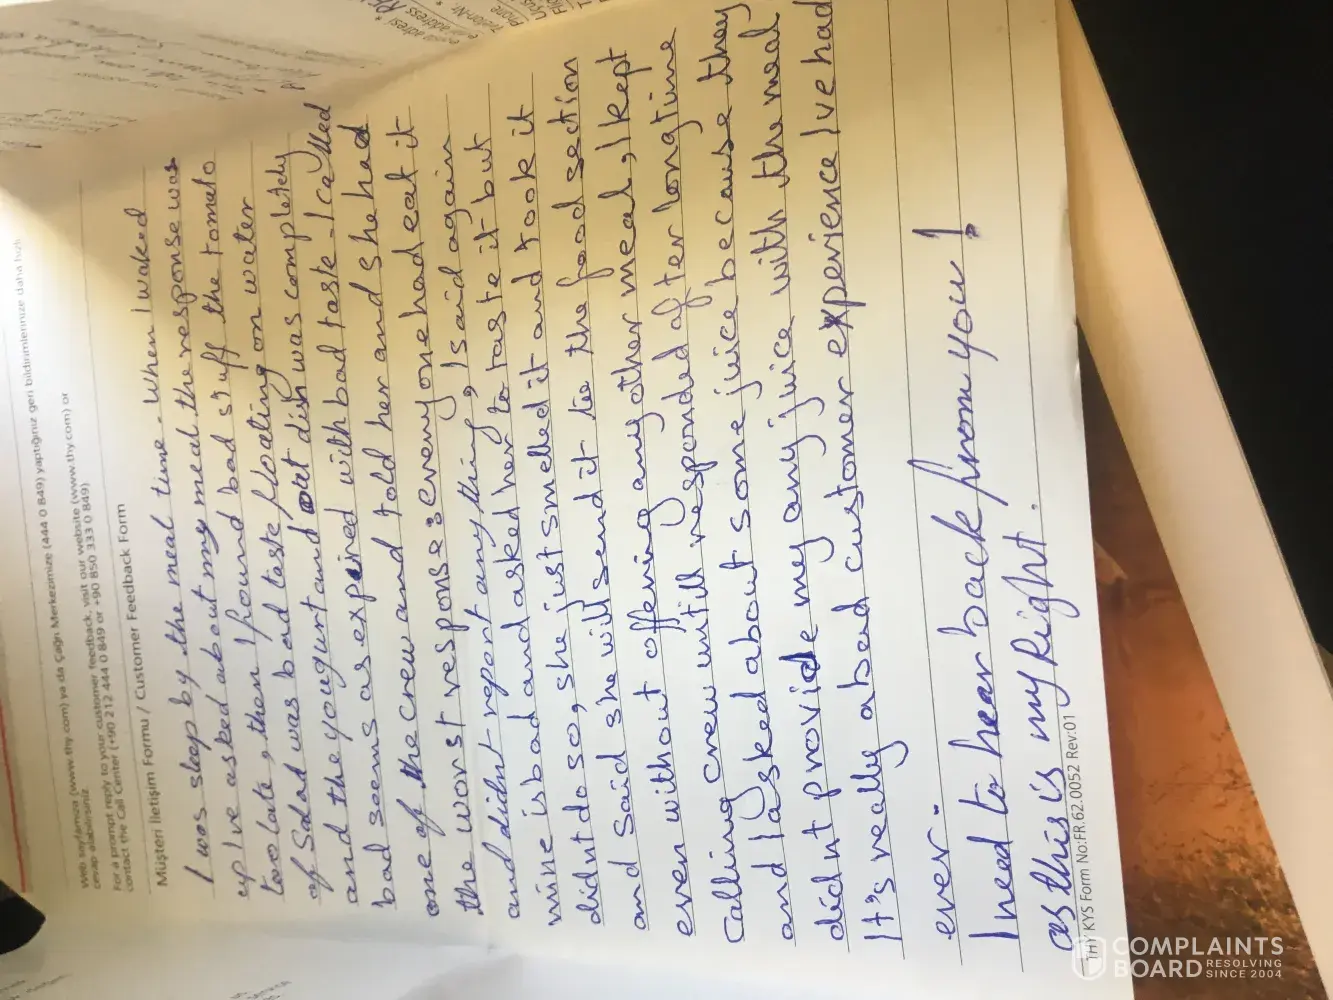 Web sayfamıza (www.thy.com) ya da Çağrı Merkezimize (444 0 849) yaptığınız geri bildirimlerinize daha hızlı
cevap alabilirsiniz.
For a prompt reply to your customer feedback, visit our website (www.thy.com) or
contact the Call Center (+90 212 444 0 849 or +90 850 333 0 849)
Müşteri İletişim Formu / Customer Feedback Form
I was sleep by the meal time - when I waked
up I've asked about my meal the response was
too late, then I found bad stuff the tomato
of Salad was bad taste floating on water
and the yougurt and out dish was completely
bad seems as expired with bad taste - I called
one of the crew and told her and she had
the worst response: everyone had eat it
and didnt report anything, I said again
mine is bad and asked her to taste it but
didnt do so, she just smelled it and took it
and said she will send it to the food section
even without offering any other meal, I kept
Calling crew untill responded after long time
and I asked about some juice because they
didnt provide me any juice with the meal
It's really a bad customer experience I've had
ever.
I need to hear back from you!
as this is my Right.
THY KYS Form No:FR.62.0052 Rev:01
COMPLAINTS
BOARD RESOLVING
SINCE 2004